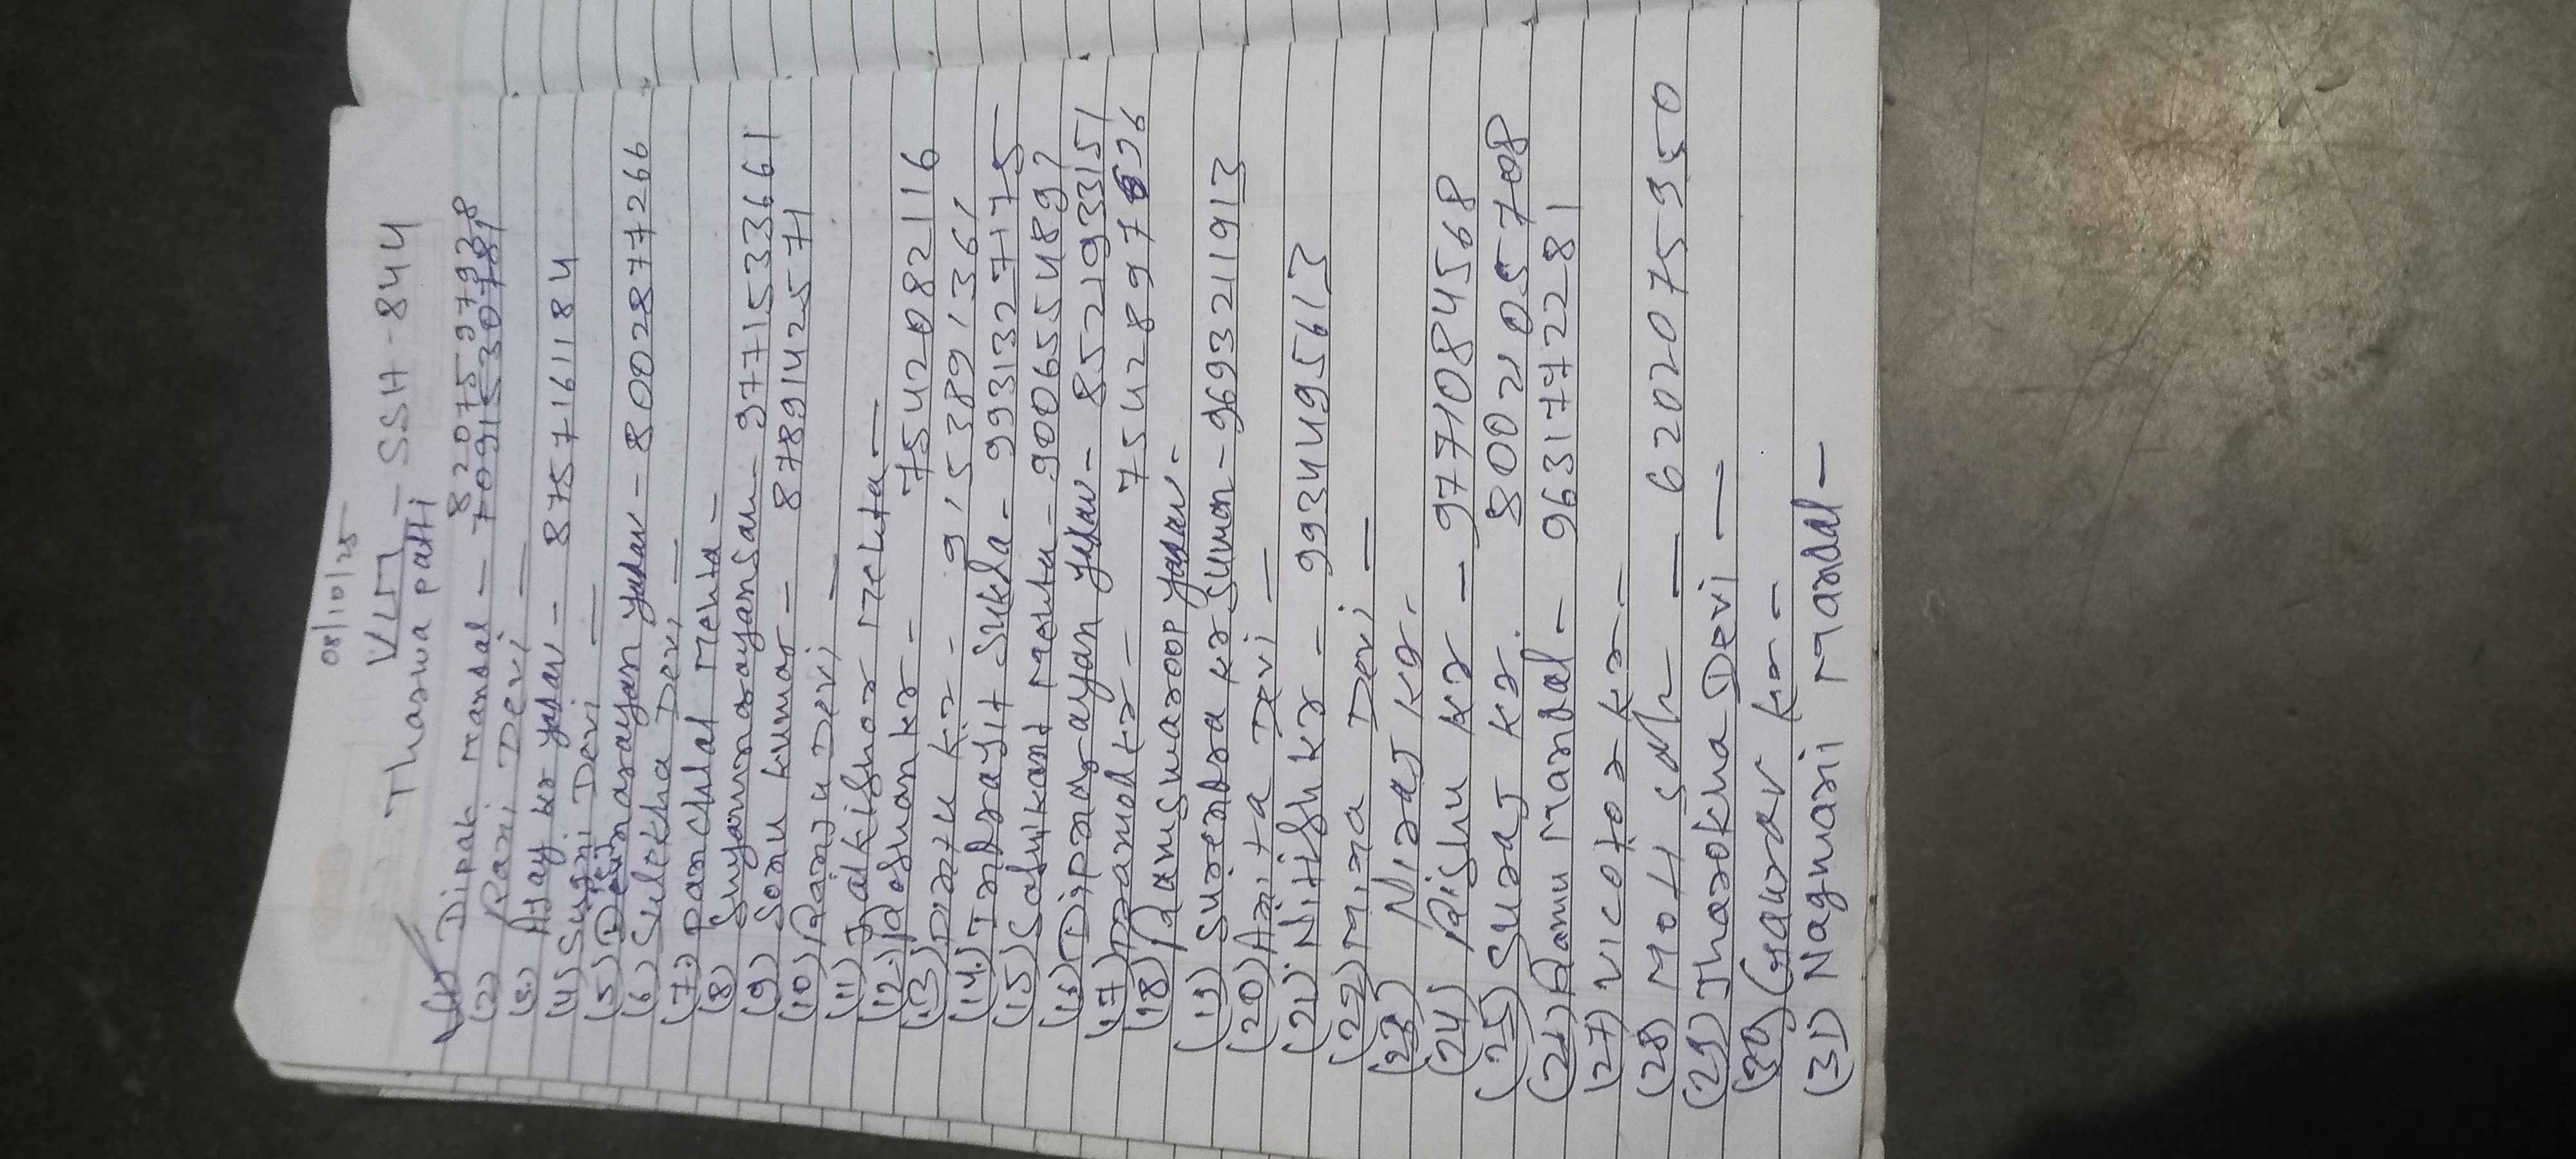 08/10/25
VLM - SSH-844
Tharwa patti
(1) Dipak Mandal - 8207597928
7091530781
(2) Rani Devi -
(3) Ajay kr yadav - 8757161184
(4) Sugni Devi =
(5) Devnarayan yadav - 8002877266
(6) Sulekha Devi -
(7) panchlal Mehta -
(8) Suyarnarayansau - 9771533661
(9) Sonu kumar - 8789142571
(10) Ranju Devi -
(11) Jaikishor Mehta -
(12) Roshan kr - 7542082116
(13) pintu kr - 9153891361
(14) Indrajit Sukla - 9931327175
(15) Mehta - 9006554897
(16) Dipnarayan yadav - 8521933151
(17) pramod kr - 7542897
(18) Ramswaroop yadav -
(19) Surendra kr Suman - 9693211913
(20) Anita Devi -
(21) Nitish kr - 9934495613
(22) Mina Devi -
(23) Niraj kr.
(24) Rishu kr - 9771084568
(25) Suraj kr. 8002105708
(26) Ramu Mandal - 9631742281
(27) vicotor kr -
(28) MoH - 6202075950
(29) Jharokha Devi -
(30) Gaurav kr -
(31) Nagmani Mandal -